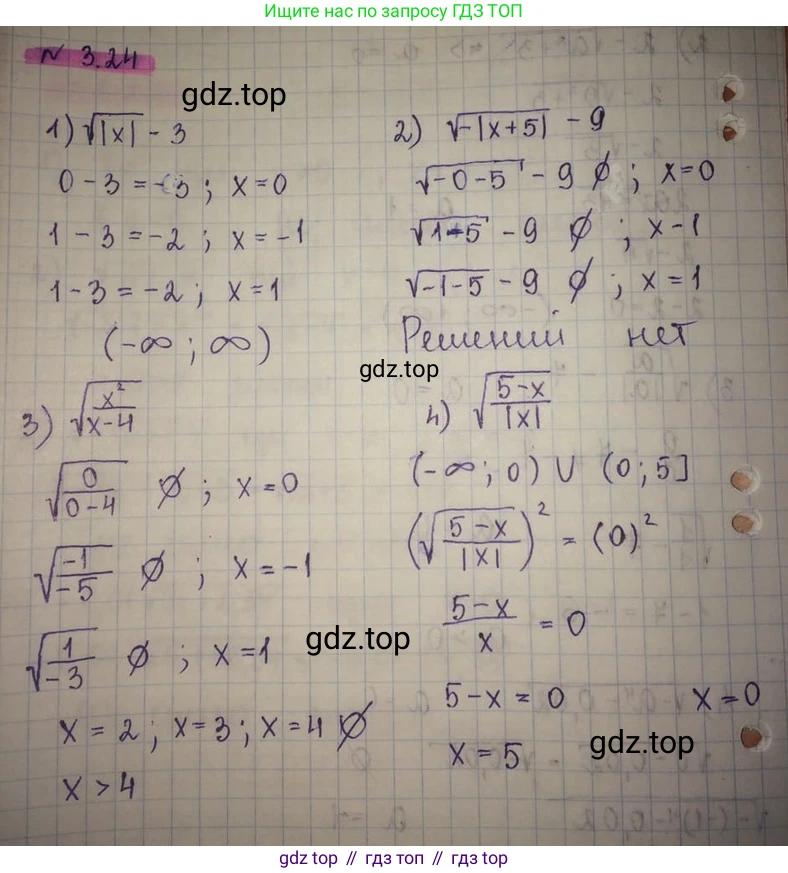 Ищите нас по запросу ГДЗ ТОП
N 3.24
gdz.top
1) √|x| - 3
0 - 3 = -3 ; x = 0
1 - 3 = -2 ; x = -1
1 - 3 = -2 ; x = 1
(-∞ ; ∞)
2) √-|x+5| - 9
√-0-5 - 9 ∅ ; x=0
√1-5 - 9 ∅ ; x-1
√-1-5 - 9 ∅ ; x = 1
Решений нет
gdz.top
3) √x²/x-4
√0/0-4 ∅ ; x = 0
√-1/-5 ∅ ; x = -1
√1/-3 ∅ ; x = 1
x = 2 ; x = 3 ; x = 4 ∅
x > 4
4) √5-x/|x|
(-∞ ; 0) ∪ (0 ; 5]
(√5-x/|x|)² = (0)²
5-x/x = 0
gdz.top
5-x = 0 x = 0
x = 5
gdz.top
gdz top // гдз топ // gdz top